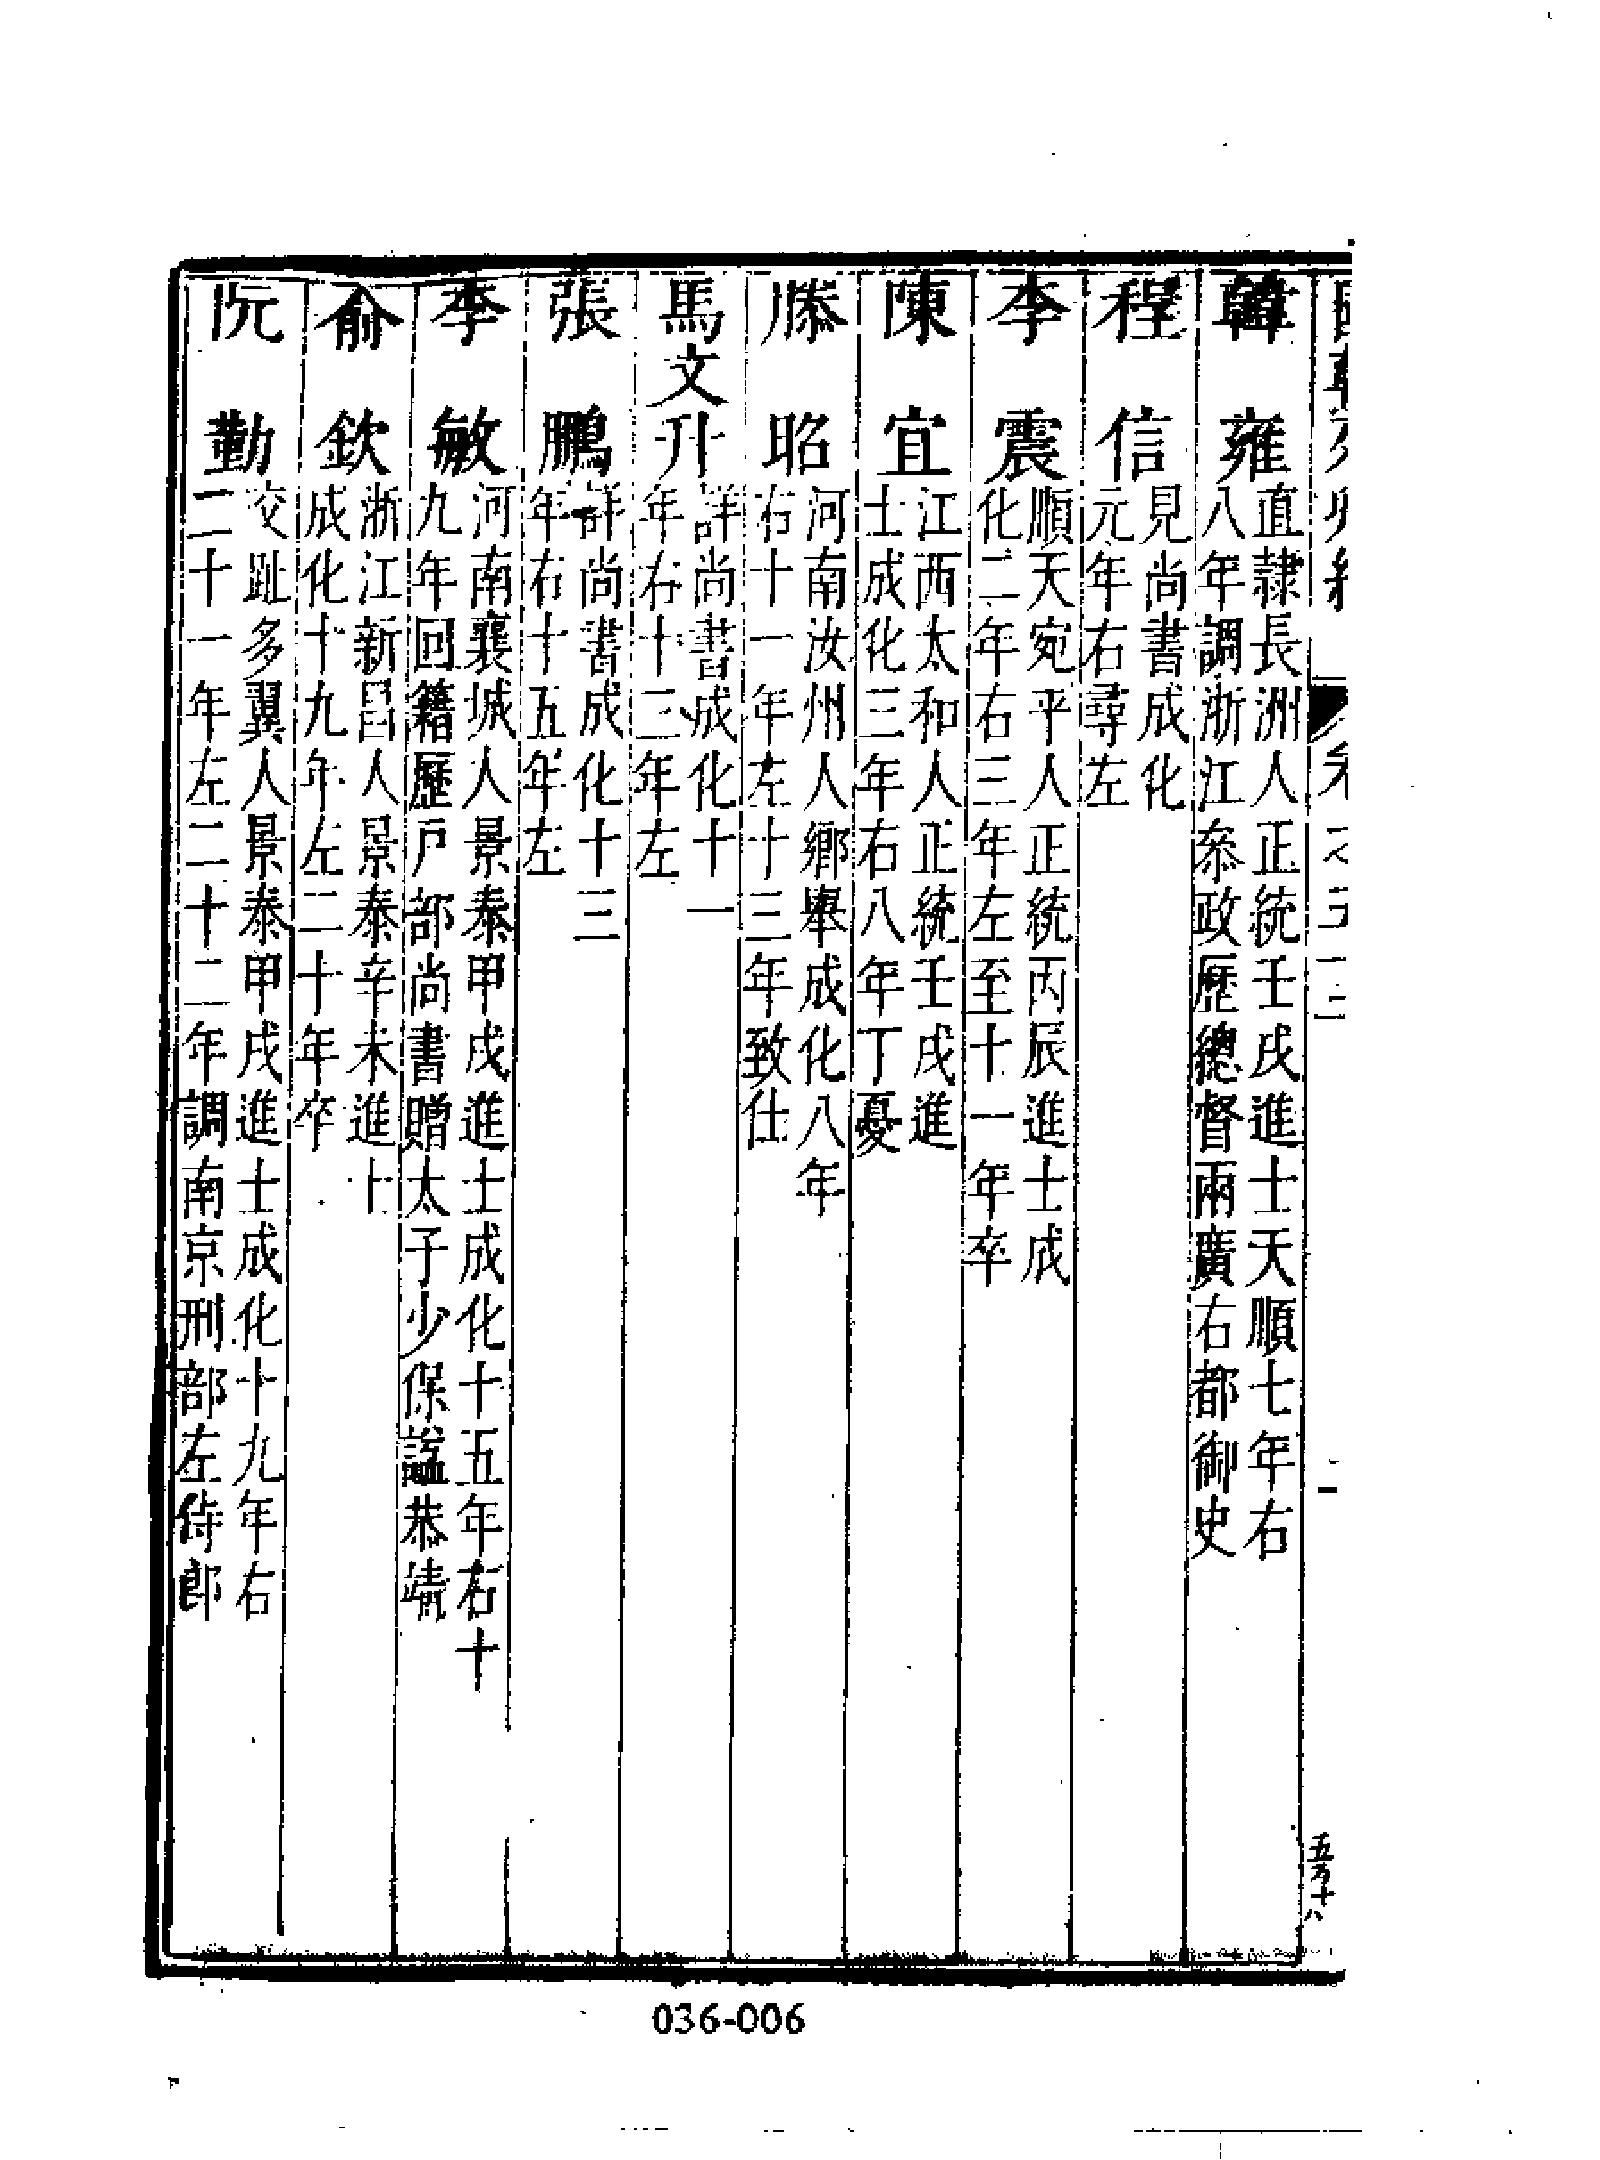 韓雍直隷長洲人正統壬戌進士天順七年右
八年調浙江叅政歷總督兩廣右都御史
程信見尚書成化
元年右尋左
李震順天宛平人正統丙辰進士成
化二年右三年左至十一年卒
陳宜江西太和人正統壬戌進
士成化三年右八年丁憂
滕昭河南汝州人鄉舉成化八年
右十一年左十三年致仕
馬文升詳尚書成化十一
年右十三年左
張鵬詳尚書成化十三
年右十五年左
李敏河南襄城人景泰甲戌進士成化十五年右十
九年回籍歷戶部尚書贈太子少保諡恭靖
俞欽浙江新昌人景泰辛未進士
成化十九年左二十年卒
阮勤交趾多翼人景泰甲戌進士成化十九年右
二十一年左二十二年調南京刑部左侍郎
036-006